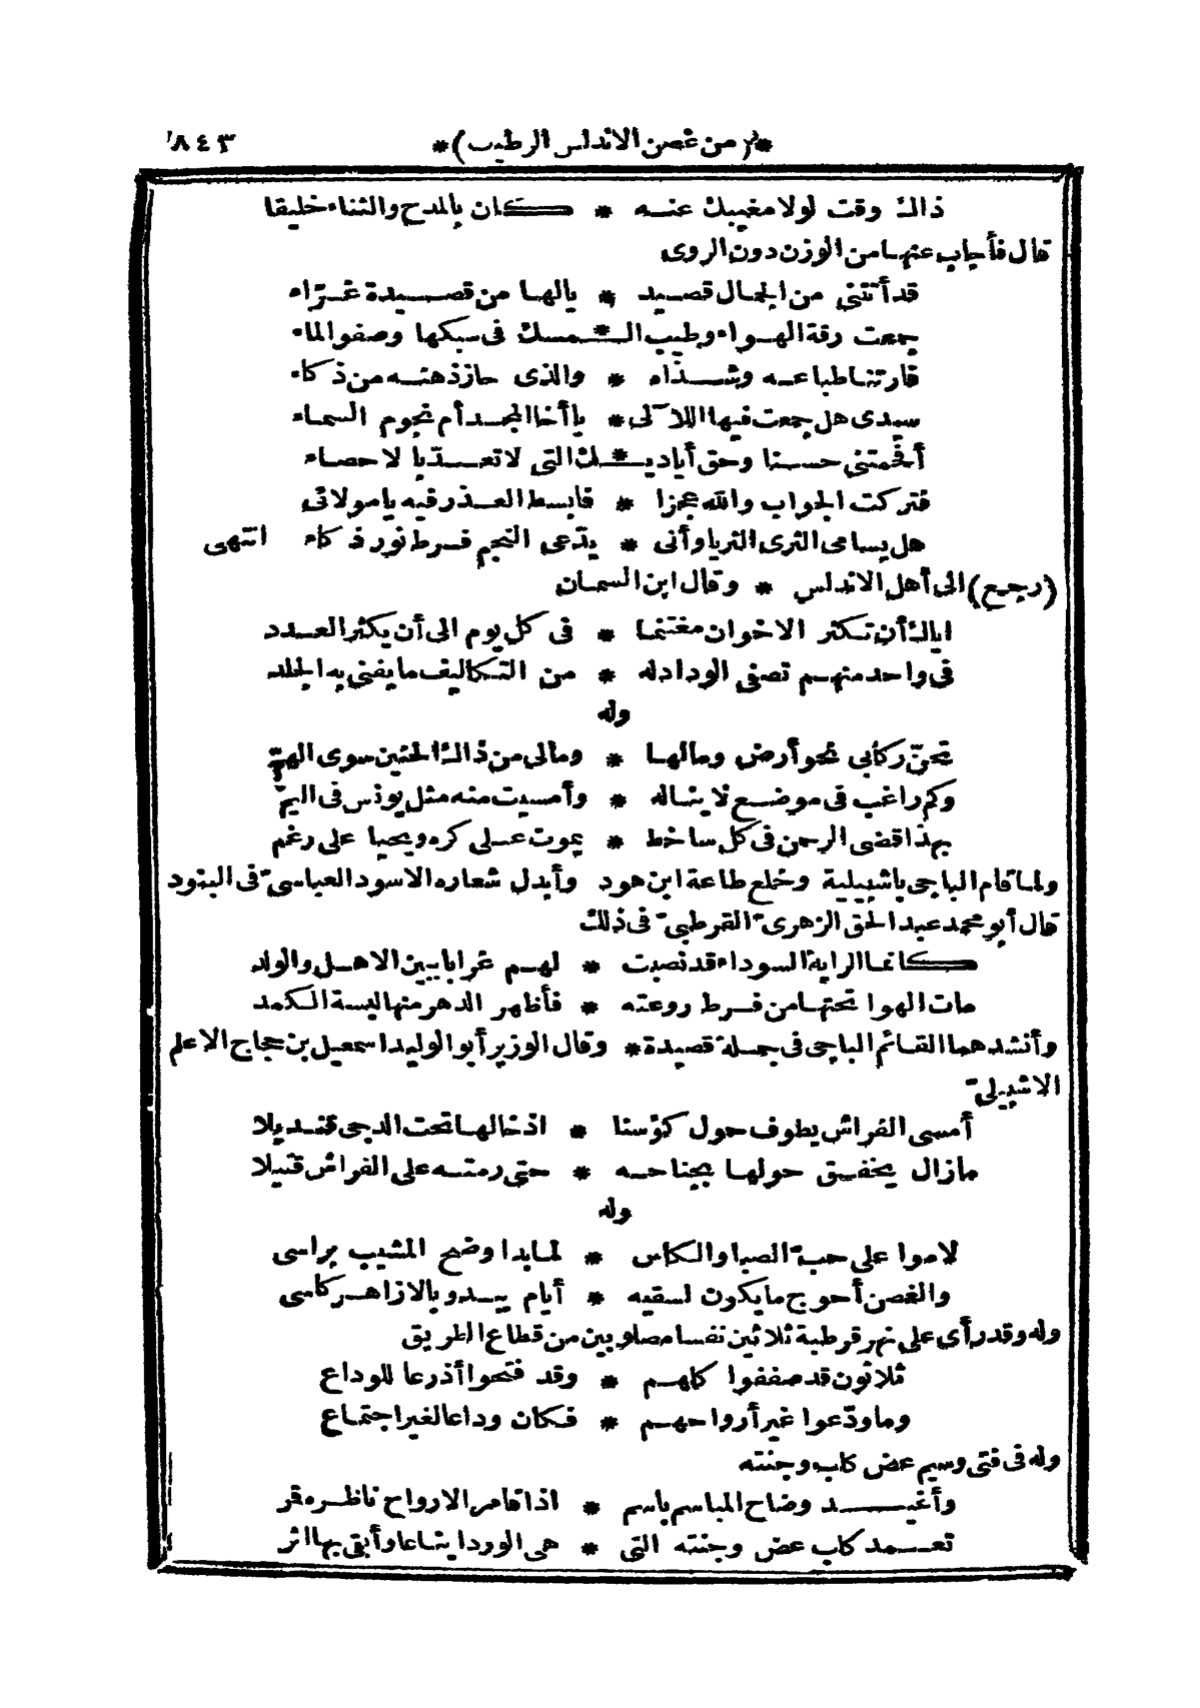 *(من غصن الاندلس الرطيب)* ٨٤٣
ذاك وقت لولا مغيبك عنه * كان بالمدح والثناء خليقا
قال فأجاب عنها من الوزن دون الروى
قد أتتنى من الجمال قصيد * يالها من قصيدة غرّاء
جمعت رقة الهواء وطيب الـ*ـمسك فى سبكها وصفو الماء
فارتنا طباعه وشذاه * والذى حاز ذهنه من ذكاء
سيدى هل جمعت فيها اللاّلى * يا أخا المجد أم نجوم السماء
أفحمتنى حسنا وحق أياديـ*ـك التى لا تعدّ بالاحصاء
فتركت الجواب والله عجزا * فابسط العذر فيه يا مولائى
هل يسامى الثرى الثريا وأنى * يدّعى النجم فرط نور ذكاء انتهى
(رجع) الى أهل الاندلس * وقال ابن السمان
اياك أن تكثر الاخوان مغتنما * فى كل يوم الى أن يكثر العدد
فى واحد منهم تصفى الوداد له * من التكاليف ما يفنى به الجلد
وله
تحنّ ركابى نحو أرض ومالها * ومالى من ذاك الحنين سوى الهمّ
وكم راغب فى موضع لا يناله * وأمسيت منه مثل يونس فى اليمّ
بهذا قضى الرحمن فى كل ساخط * يموت على كره ويحيا على رغم
ولما قام الباجى باشبيلية وخلع طاعة ابن هود وأبدل شعاره الاسود العباسىّ فى البنود
قال أبو محمد عبد الحق الزهرىّ القرطبىّ فى ذلك
كانما الراية السوداء قد نصبت * لهم غرابا ببين الاهل والولد
مات الهوا تحتها من فرط روعته * فأظهر الدهر منها لبسة الكمد
وأنشدهما القائم الباجى فى جملة قصيدة * وقال الوزير أبو الوليد اسمعيل بن حجاج الاعلم
الاشبيلىّ
أمسى الفراش يطوف حول كؤسنا * اذ خالها تحت الدجى قنديلا
مازال يخفق حولها بجناحه * حتى رمته على الفراش قتيلا
وله
لاموا على حبّ الصبا والكاس * لما بدا وضح المشيب براسى
والغصن أحوج ما يكون لسقيه * أيام يبدو بالازاهر كاسى
وله وقد رأى على نهر قرطبة ثلاثين نفسا مصلوبين من قطاع الطريق
ثلاثون قد صففوا كلهم * وقد فتحوا أذرعا للوداع
وما ودّعوا غير أرواحهم * فكان وداعا لغير اجتماع
وله فى فتى وسيم عض كلب وجنته
وأغيد وضاح المباسم باسم * اذا قامر الارواح ناظره قمر
تعمد كلب عض وجنته التى * هى الورد ايناعا وأبقى بها اثر